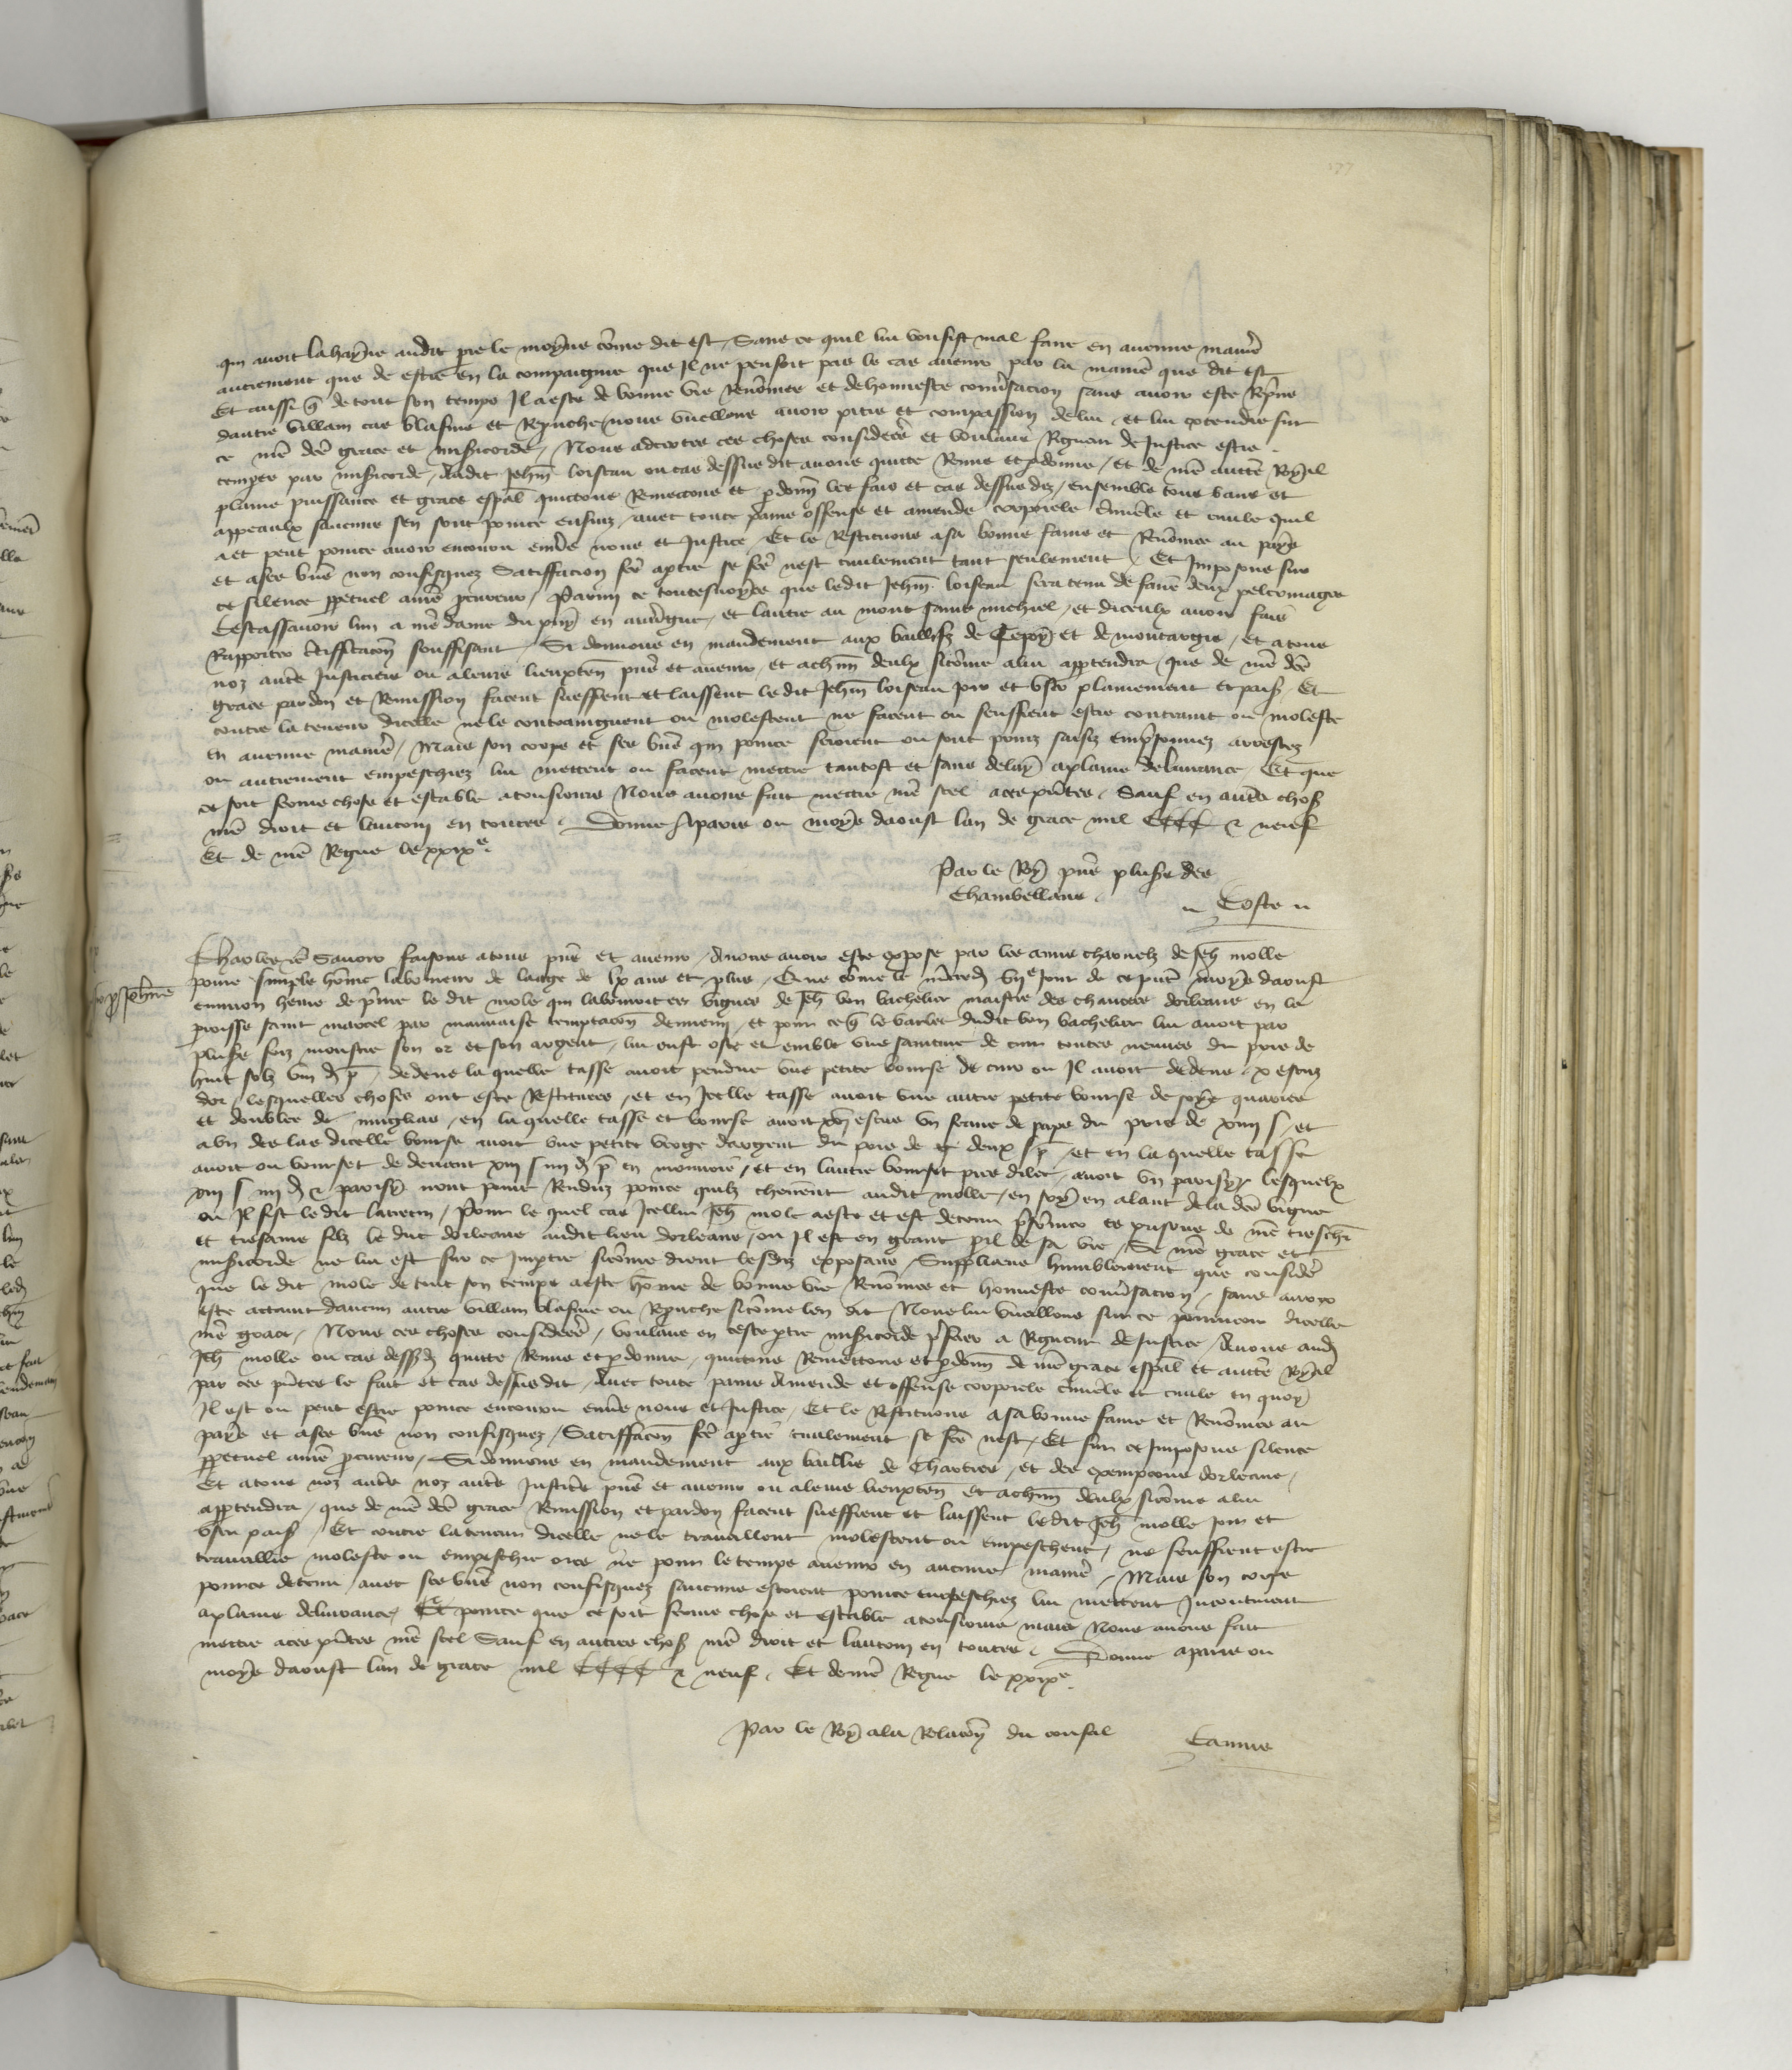 177
qui avoit la hayne audit pre le moyne come dit est, Sans ce quil lui voulsist mal faire en aucune maniere
autrement que de estre en la compaignie que Il ne pensoit pas le cas avenir par la maniere que dit est
Et aussi q de tout son temps Il a este de bonne vie Renomee et dehonneste conversacion sans avoir este Reprins
dautre villain cas blasme et Reprouche nous vueillons avoir pitie et compassion de lui et lui extendre sur
ce nre dce grace et misericorde, Nous adcertes ces choses considerees et voulans Rigueur de Justice estre
tempree par misericorde, Audit Jehan loiseau ou cas dessus dit avons quitte Remis et pdonne, et de nre auctte Royal
plaine puissance et grace espal quictons Remectons et pdonns les fais et cas dessus diz, ensemble tous bans et
appeaulx saucuns sen sont pource ensuiz, avec toute paine offense et amende corporele criminele et civile quil
a et peut pource avoir encouru envers nous et Justice, Et le Restituons asa bonne fame et Renomee au pays
et ases biens non confisquez Satiffacion fce aptie se fce nest civilement tant seulement, Et Imposons sur
ce silence ppetuel anre procureur, Parmi ce toutesvoyes que ledit Jehan loiseau sera tenu de faire deux pelerinages
Cestassavoir lun a nre dame du puy en auvergne, et lautre au mont saint michiel, et diceulx avoir faiz
Rapporter certifficacon souffisant, Si donnons en mandement aux bailliz de Cepoy et de montargis, et atous
noz autres Justiciers ou aleurs lieuxten pns et avenir, et achun deulx sicome alui apptendra, que de nre dce
grace pardon et Remission facent sueffrent et laissent ledit Jehan loiseau joir et user plainement et paisib, Et
contre la teneur dicelle nele contraingnent ou molestent ne facent ou seuffrent estre contraint ou moleste
en aucune maniere, Mais son corps et ses biens qui pource seroient ou sont prins saisiz emprisonnez arrestez
ou autrement empeschiez lui mettent ou facent mettre tantost et sans delay aplaine delivrance, Et que
ce soit ferme chose et estable atousiours Nous avons fait mettre nre scel aces pntes, Sauf en autres choses
nre droit et lautruy en toutes, Donne aparis ou moys daoust lan de grace mil CCCC & neuf
Et de nre Regne le xxixe
Par le Roy pns plusrs des
Chambellans
Coste
Charles etc Savoir faisons atous pns et avenir, Anous avoir este expose par les amis charnelz de Jeh molle
povre simple homme laboureur de laage de lx ans et plus, Que come le mercredi vije jour de ce pnt moys daoust
pro Jehanne
environ heure de prime le dit mole qui labouroit es vignes de Jeh bon bachelier maistre des chantres dorleans en la
parroisse saint marcel par mauvaise temptacon dennemi, et pour ce q le varlet dudit bon bachelier lui avoit par
plusrs foiz monstre son or et son argent, lui eust oste et emble une sainture de cuir toutes neuves du pris de
huit solz viij d p, dedens la quelle tasse avoit pendue une petite bourse de cuir ou Il avoit dedens x escuz
dor, lesquelles choses ont este Restituees, et en Icelle tasse avoit une autre petite bourse de soye quarree
et doublee de, en la quelle tasse et bourse avoit escus un franc de pape du pris de xiiij s, et
a un des las dicelle bourse avoit une petite verge dargent du pris de deux s p, et en la quelle tasse
avoit ou bourset de devant xiij s iiij d p en monnoie, et en lautre bourset pres dilec, avoit un parisy, lesquelx
xiij s iiij d & parisy nont point Renduz pource quilz cheurent audit molle, en soy en alant dela dce vigne
ou Il fist ledit larrecin, Pour le quel cas Icellui Jeh mole a este et est detenu prisonnier es prisons de nre treschr
et tresame filz le duc dorleans audit lieu dorleans, ou Il est en grant peril de sa vie, Se nre grace et
misericorde ne lui est sur ce Impartie sicome dient lesdiz exposans, Supplians humblement que considere
que le dit mole de tout son temps a este home de bonne vie Renomee et honneste conversacion, sans avoir
este actaint daucun autre villain blasme ou Reprouche sicome len dit Nous lui vueillons sur ce pourveoir dicelle
nre grace, Nous ces choses considerees, voulans en ceste partie misericorde preferer a Rigueur de Justice, Avons aud
Jeh molle ou cas dessusd quitte Remis et pdonne, quictons Remettons et pdonns de nre grace espal et auctte Royal
par ces pntes le fait et cas dessus dit, Avec toute paine Amende et offense corporele criminele et civile en quoy
Il est ou peut estre pource encouru envers nous et Justice, Et le Restituons asa bonne fame et Renomee au
pays et ases biens non confisquez, Satiffacon fce aptie civilement se fce nest, Et sur ce Imposons silence
ppetuel anre procureur, Si donnons en mandement aux baillis de Chartres, et des exempcions dorleans,
Et atous noz autres noz autres Justiciers pns et avenir ou aleurs lieuxten et achun deulx sicome alui
apptendra, que de nre dce grace Remission et pardon facent sueffrent et laissent ledit Jeh molle joir et
user paisib, Et contre lateneur dicelle nele travaillent molestent ou empeschent, ne seuffrent estre
travaillie moleste ou empeschie ores ne pour le temps avenir en aucune maniere, Mais son corps
pource detenu, avec ses biens non confisquez saucuns estoient pource empeschiez lui mettent Incontinent
aplaine delivrance, Et pource que ce soit ferme chose et estable atousiours mais Nous avons fait
mettre aces pntes nre scel Sauf en autres choses nre droit et lautruy en toutes, Donne aparis ou
moys daoust lan de grace mil CCCC & neuf, Et denre Regne le xxixe
Par le Roy ala Relacon du conseil
Camus